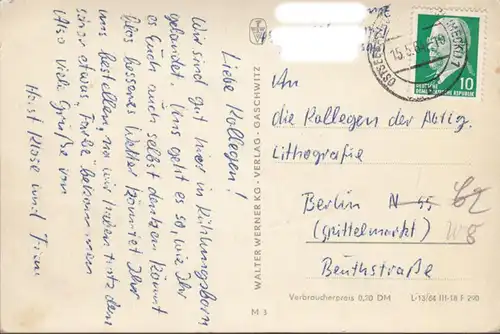 Liebe Kollegen!
Wir sind gut hier in Kühlungsborn
gelandet. Uns geht es so, wie Ihr
es Euch auch selbst denken könnt
besseres Wetter könntet Ihr
uns bestellen, wir haben trotzdem
schon etwas "Farbe" bekommen
Also viele Grüße von
Horst Klose und Frau
WALTER WERNER KG · VERLAG · GASCHWITZ
M 3
15.5.64
10
DEUTSCHE
DEMOKRATISCHE REPUBLIK
An
die Kollegen der Abtlg.
Lithografie
Berlin N 65 C2
(Spittelmarkt) W8
Beuthstraße
Verbraucherpreis 0,20 DM L-13/64 III-18 F 290